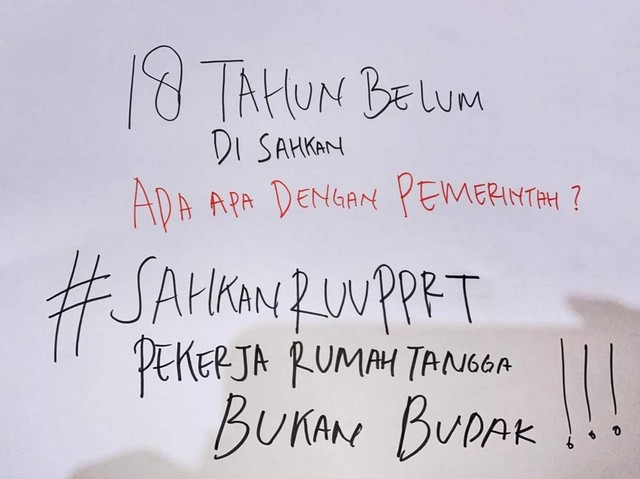 18 TAHUN BELUM
DI SAHKAN
ADA APA DENGAN PEMERINTAH?
#SAHKANRUUPPRT
PEKERJA RUMAH TANGGA
BUKAN BUDAK !!!